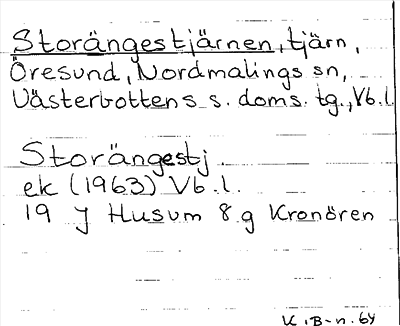 Storängestjärnen, tjärn,
Öresund, Nordmalings sn,
Västerbottens s. doms. tg., Vb. l.
Storängestj
ek (1963) Vb. l.
19 J Husum 8 g Kronören
K. B-n. 64